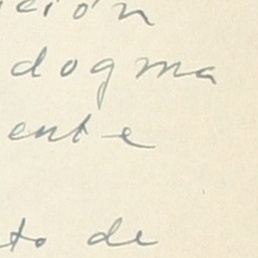 ición
dogma
ente
to de